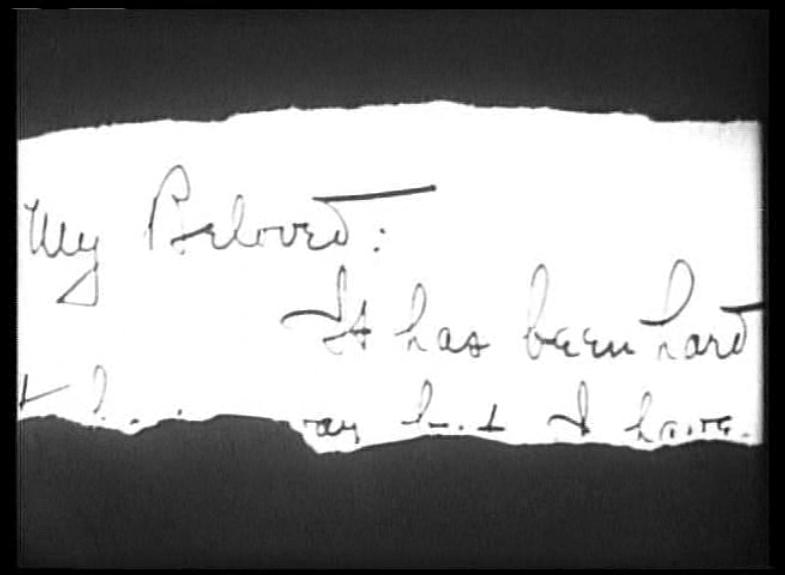 My Beloved:
It has been hard
but I have